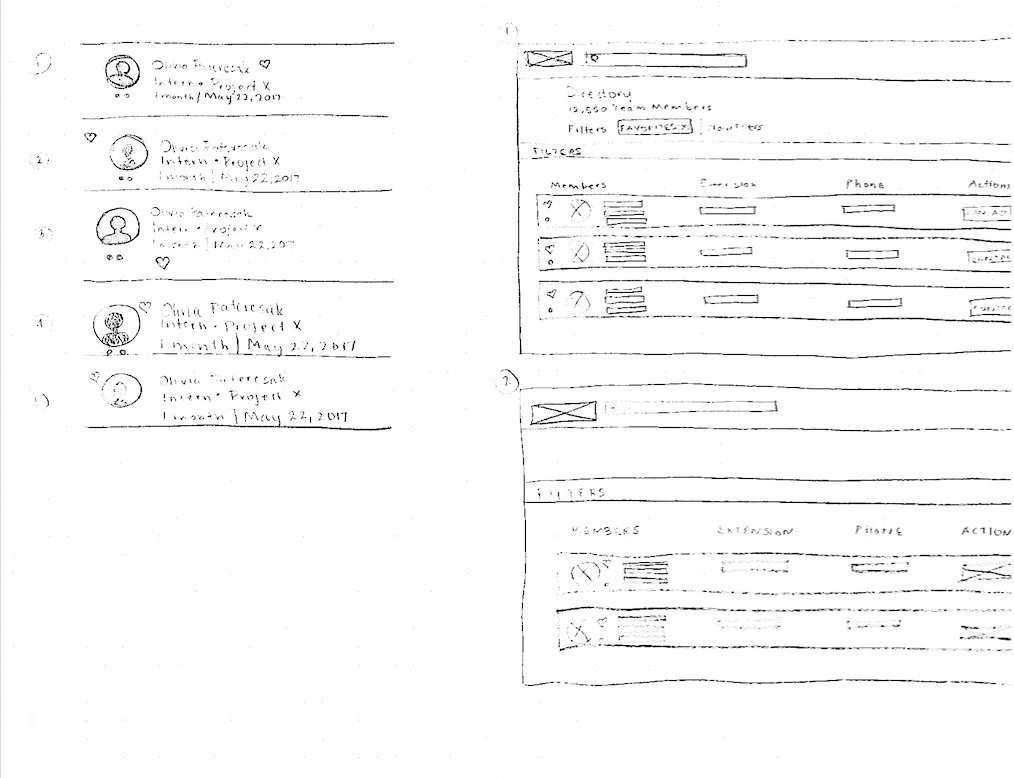 1
Olivia Pateresak
Intern • Project X
1 month | May 22, 2017
2
Olivia Pateresak
Intern • Project X
1 month | May 22, 2017
3
Olivia Pateresak
Intern • Project X
1 month | May 22, 201
4
Olivia Pateresak
Intern • Project X
1 month | May 22, 2017
Olivia Pateresak
Intern • Project X
1 month | May 22, 2017
1
Directory
12,550 Team Members
Filters FAVORITES X
FILTERS
Members Extension Phone Actions
2
FILTERS
MEMBERS EXTENSION PHONE ACTION